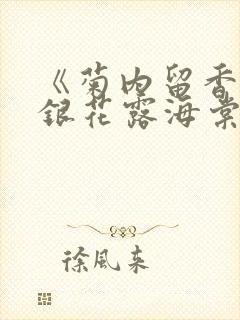 《菊内留香
银花露海棠
徐风来